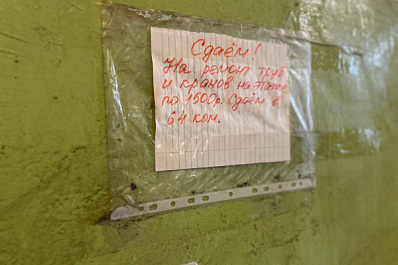 Сдаём!
На ремонт труб
и кранов на этаже
по 1500р. Сдаём в
64 ком.